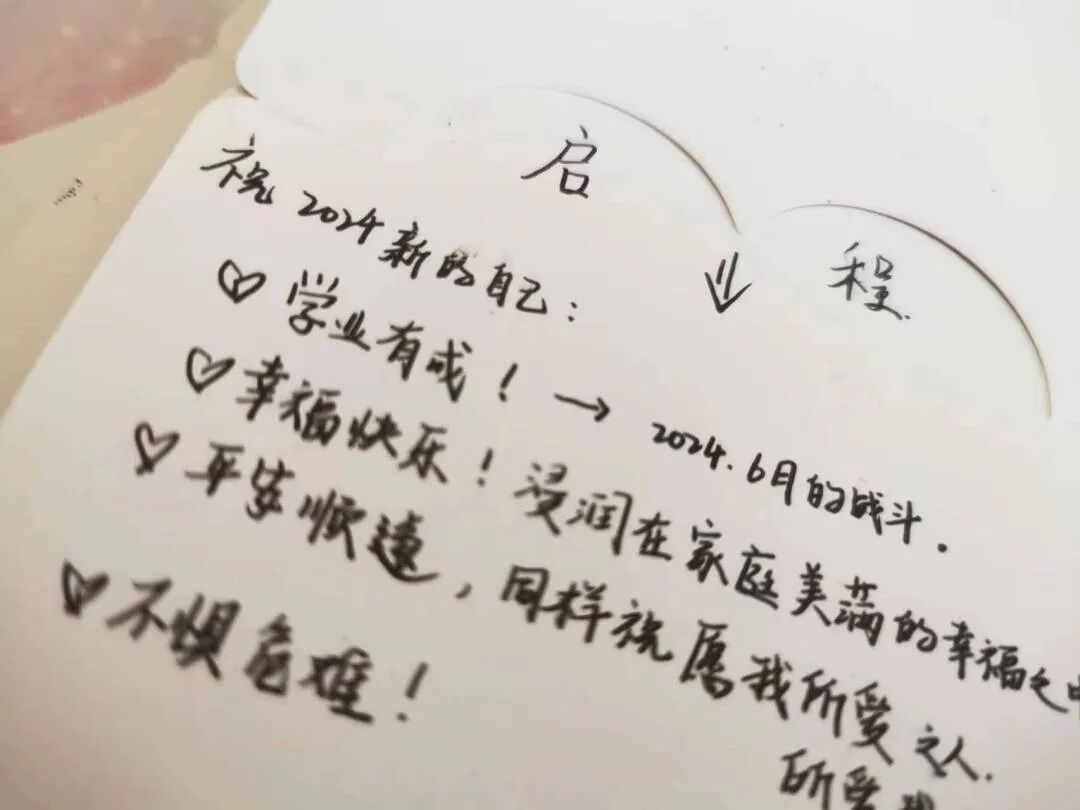 启 程.
祝 2024 新的自己：
学业有成！→ 2024.6月的战斗。
幸福快乐！浸润在家庭美满的幸福之中
平安顺遂，同样祝愿我所爱之人.
所爱
不惧危难！